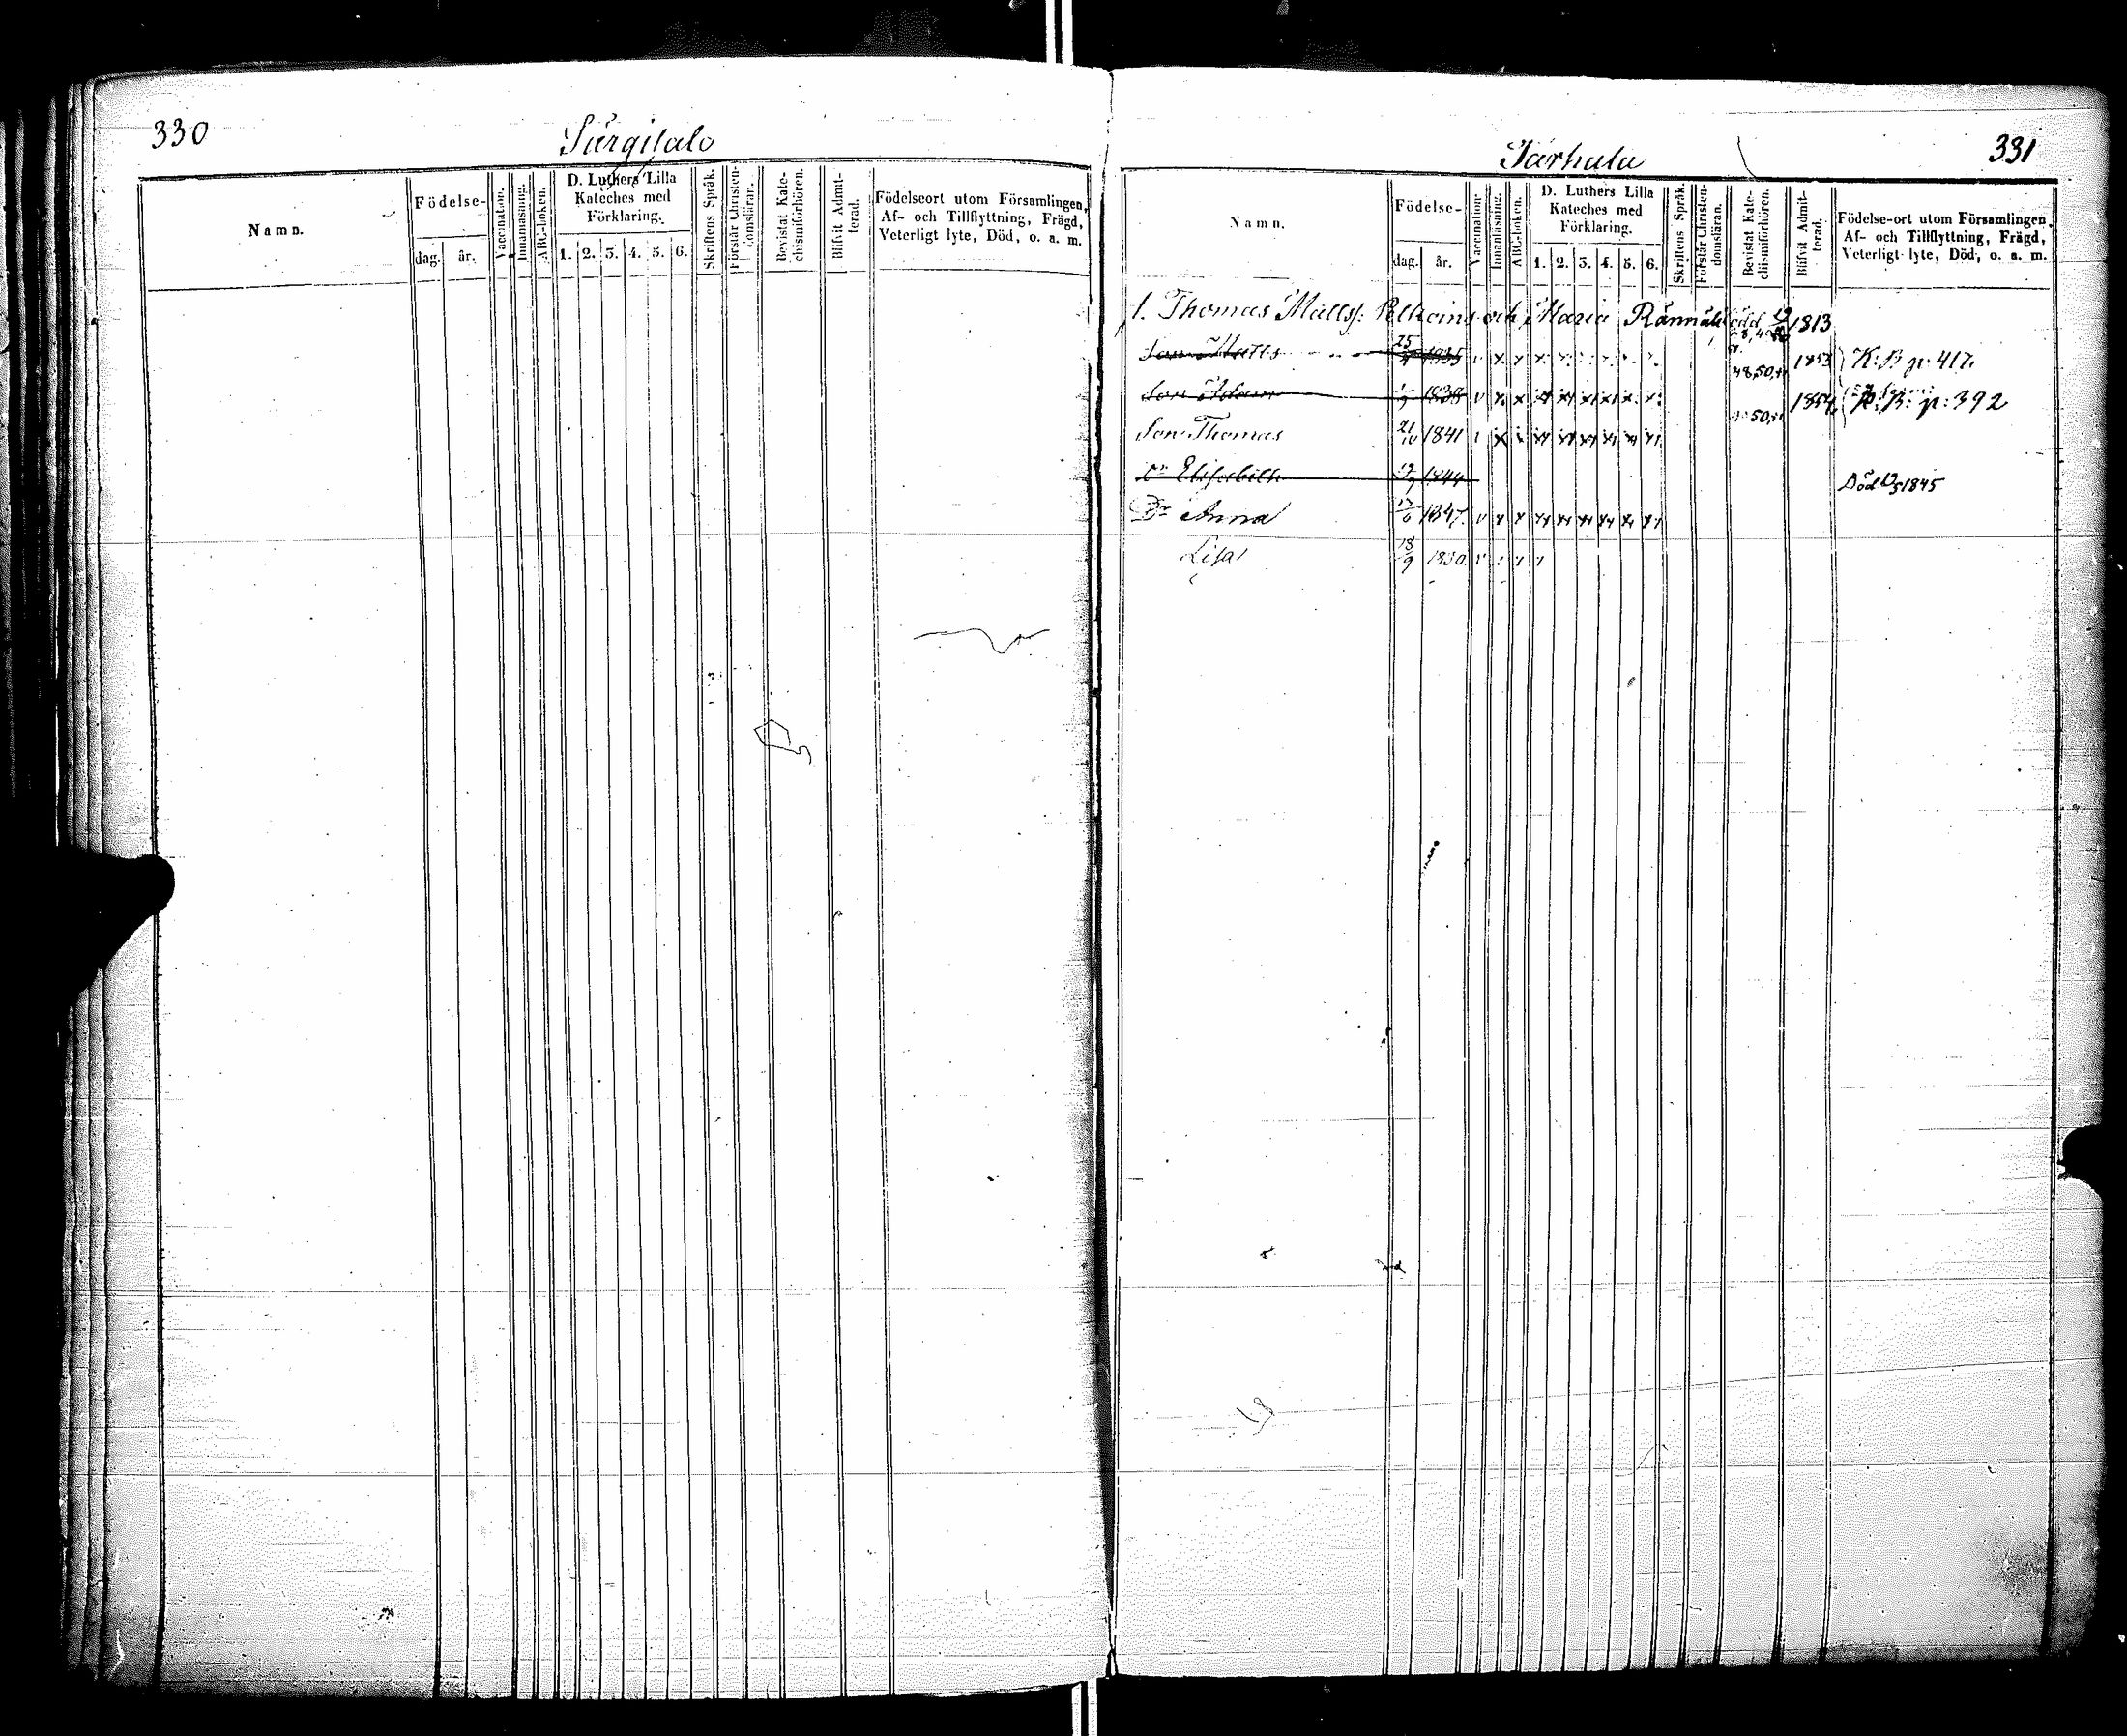 330
Sürgitalo
Namn.
Födelse-
dag. år.
Vaccination.
Innanläsning.
ABC-boken.
D. Luthers Lilla
Kateches med
Förklaring.
1. 2. 3. 4. 5. 6.
Skriftens Språk.
Förstår Christen-
domsläran.
Bevistat Kate-
chismiförhören.
Blifvit Admit-
terad.
Födelseort utom Församlingen,
Af- och Tillflyttning, Frägd,
Veterligt lyte, Död, o. a. m.
331
Tarhala
Namn.
Födelse-
dag. år.
Vaccination.
Innanläsning.
ABC-boken.
D. Luthers Lilla
Kateches med
Förklaring.
1. 2. 3. 4. 5. 6.
Skriftens Språk.
Förstår Christen-
domsläran.
Bevistat Kate-
chismiförhören.
Blifvit Admit-
terad.
Födelse-ort utom Församlingen,
Af- och Tillflyttning, Frägd,
Veterligt lyte, Död, o. a. m.
1. Thomas Matts: och Maria 1813
Son Matts 25 1835 1853 K: B p: 417.
Son Adam 1838 50, 1854 K: B: p: 392
Son Thomas 21/10 1841
Dr Elisabeth 1844 Död 1845
Dr Anna 17/6 1847.
Lisa 18/9 1850